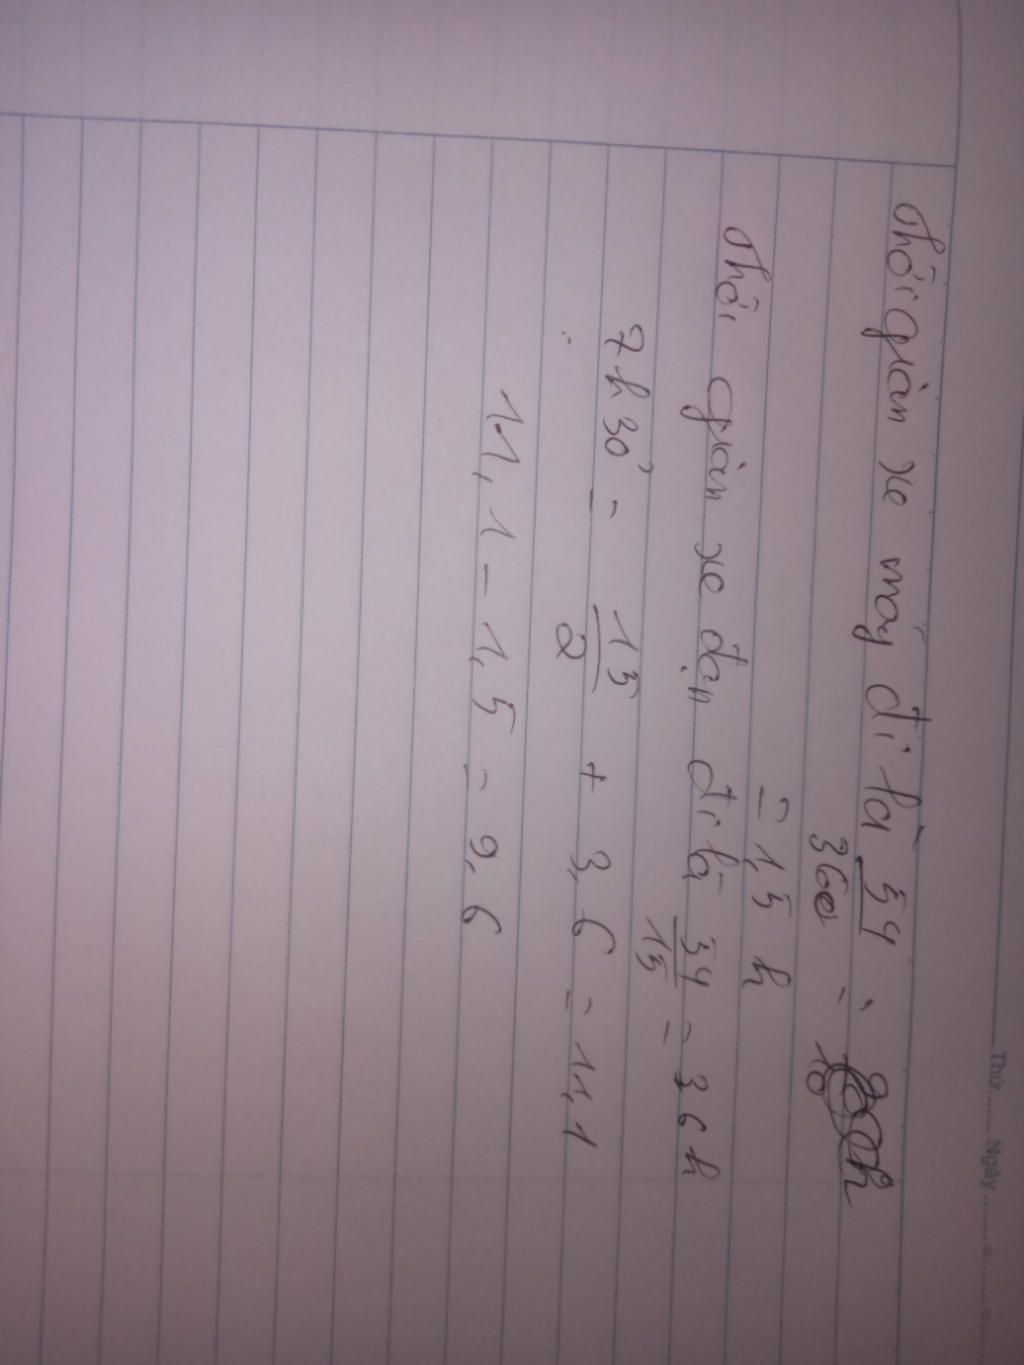 Thứ....... Ngày.......
Thời gian xe máy đi là 54 =
36 =
= 1,5 h
Thời gian xe đạp đi là 54 = 3 6 h
15 =
7h30' = 15 + 3,6 = 11,1
2
11,1 - 1,5 = 9,6